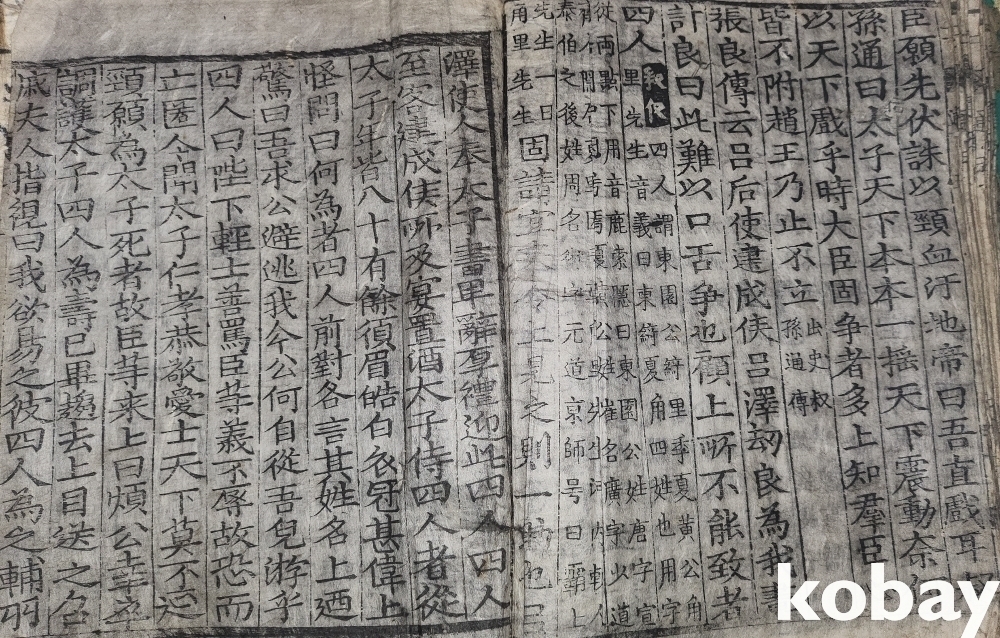 臣願先伏誅以頸血汙地帝曰吾直戲耳
孫通曰太子天下本本一揺天下震動奈
以天下戲乎時大臣固争者多上知羣臣
皆不附趙王乃止不立 出史叔
孫通傳
張良傳云吕后使建成侯吕澤刼良為我
計良曰此難以口舌争也顧上所不能致者
四人 釋疑 四人謂東園公綺里季夏黄公角
里先生音義曰東綺夏角四姓也用字
從兩點下用音鹿索隱曰東園公姓唐字宣
泰伯之後姓周名術字元道京師号曰霸上
先生一曰
甪里先生 固請宜来令上見之則一助也吕
澤使人奉太子書卑辭厚禮迎此四人四人
至客建成侯所及宴置酒太子侍四人者從
太子年皆八十有餘須眉皓白衣冠甚偉上
怪問曰何為者四人前對各言其姓名上迺
驚曰吾求公避逃我今公何自從吾兒游乎
四人曰陛下輕士善罵臣等義不辱故恐而
亡匿今聞太子仁孝恭敬愛士天下莫不延
頸願為太子死者故臣等来上曰煩公幸卒
調護太子四人為壽已畢趨去上目送之召
戚夫人指視曰我欲易之彼四人為之輔羽
kobay